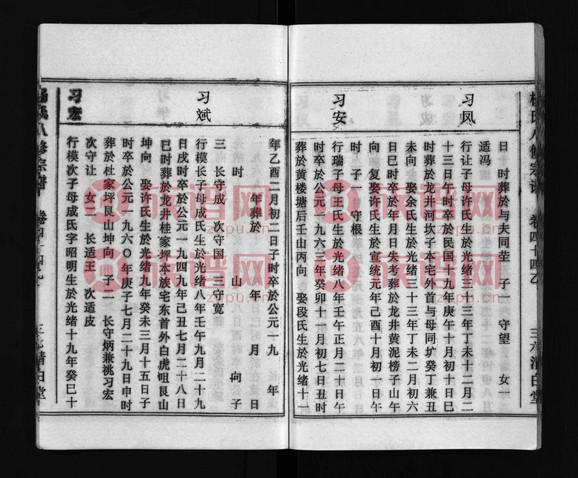 杨氏八修宗谱 卷四十四乙 三六清白堂
日 时葬於与夫同茔 子一 守望 女一
适冯
习凤
行让子母许氏生於光绪三十三年丁未十二月二
十三日午时卒於民国十九年庚午十月初十日巳
时葬於龙井河坎子本宅外首与母同圹癸丁兼丑
未向 娶余氏生於光绪三十三年丁未二月初六
日巳时卒於 年月日失考葬於龙井黄泥榜子山午
向 复娶许氏生於宣统元年己酉十月初一日午
时 子一 守根
习安
行瑞子母王氏生於光绪八年壬午正月二十日午
时卒於公元一九六三年癸卯十一月初七日丑时
葬於黄楼塘后壬山丙向 娶段氏生於光绪十一
年乙酉二月初二日子时卒於公元一九 年
年 月 日
时 年葬於 山 向 子
三 长守成 次守国 三守宽
习斌
行模长子母成氏生於光绪八年壬午九月二十九
日戌时卒於公元一九四九年己丑七月二十八日
巳时葬於龙井桂家坪本族宅东首外白虎咀艮山
坤向 娶许氏生於光绪九年癸未三月十五日子
时卒於公元一九六〇年庚子七月二十九日申时
葬於杜家坪艮山坤向 子二 长守炳兼祧习宏
次守让 女二 长适王 次适皮
习宏
行模次子母成氏字昭明生於光绪十九年癸巳十